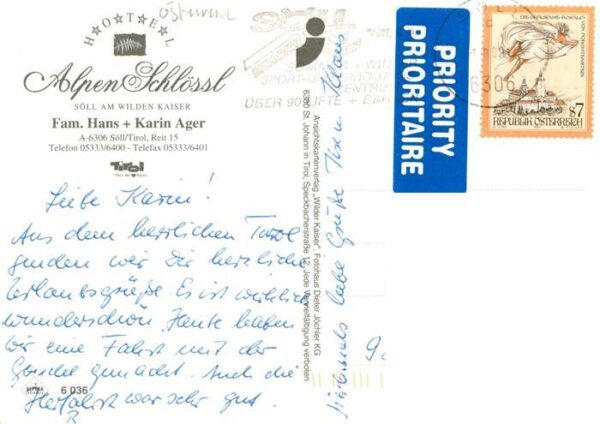 HOTEL
Alpen Schlössl
SÖLL AM WILDEN KAISER
Fam. Hans + Karin Ager
A-6306 Söll/Tirol, Reit 15
Telefon 05333/6400 - Telefax 05333/6401
Tirol
Liebe Karin!
Aus dem herrlichen Tirol
senden wir Dir herzliche
Urlaubsgrüße. Es ist wirklich
wunderschön. Heute haben
wir eine Fahrt mit der
Gondel gemacht. Auch die
Herfahrt war sehr gut.
6 036
SÖLL
SOMMER + WINTER
SPORT- UND
ÜBER 90 LIFTE + BAHNEN
i
Ansichtskartenverlag „Wilder Kaiser", Fotohaus Dieter Jöchler KG
6380 St. Johann in Tirol, Speckbacherstraße 12, Jede Vervielfältigung verboten
liebe Grüße
Klaus
PRIORITY
PRIORITAIRE
6306
S7
REPUBLIK ÖSTERREICH